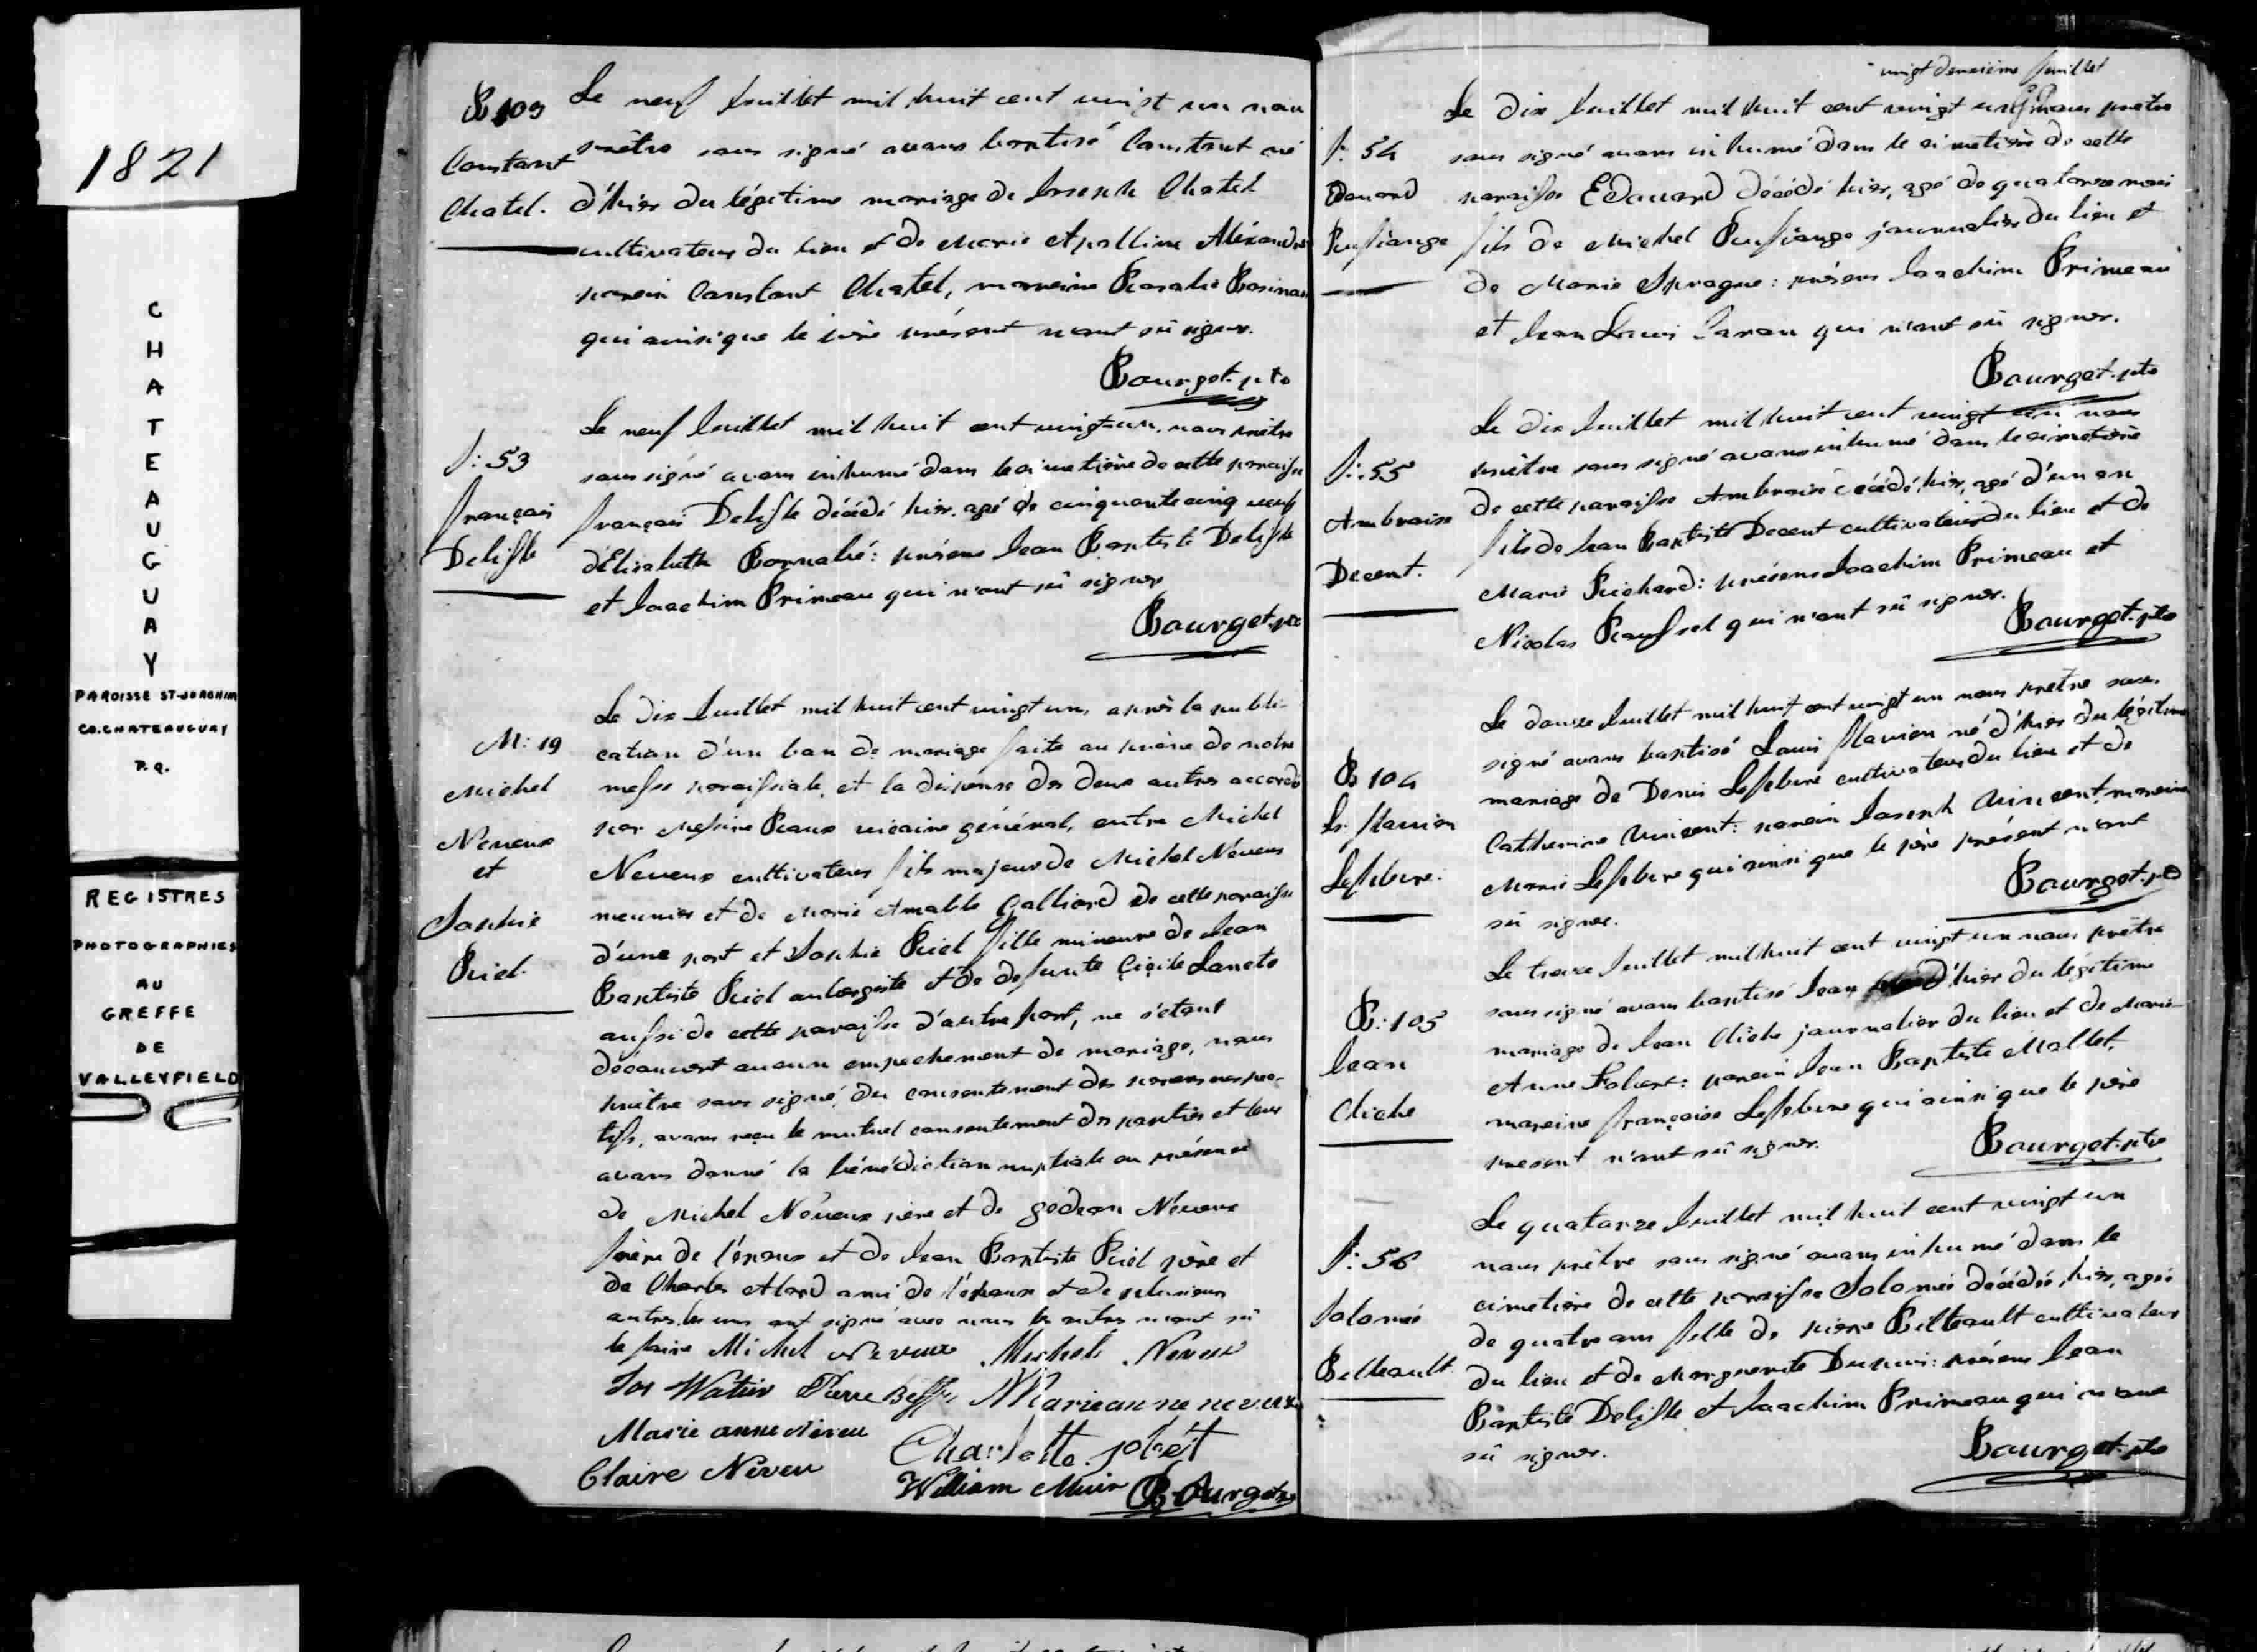 1821
CHATEAUGUAY
PAROISSE ST-JOACHIM
CO. CHATEAUGUAY
P.Q.
REGISTRES
PHOTOGRAPHIES
AU
GREFFE
DE
VALLEYFIELD
B 103
Constant
Chatel.
Le neuf Juillet mil huit cent vingt un nous
prêtre sous signé avons baptisé Constant né
d'hier du légitime mariage de Joseph Chatel
cultivateur du lieu et de Marie Apolline Alexandre
parein Constant Chatel, mareine Rosalie
qui ainsi que le père présent n'ont sû signer.
Bourget. ptre
S: 53
françois
Delisle
Le neuf Juillet mil huit cent vingt-un, nous prêtre
sous signé avons inhumé dans le cimetière de cette paroisse
françois Delisle décédé hier, agé de cinquante cinq veuf
d'Elizabeth: présens Jean Baptiste Delisle
et Joachim Primeau qui n'ont sû signer
Bourget. ptre
M: 19
Michel
Neveux
et
Sophie
Riel.
Le dix Juillet mil huit cent vingt un, après la publi-
cation d'un ban de mariage faite au prône de notre
messe paroissiale, et la dispense des deux autres accordé
par Messire Roux vicaire général, entre Michel
Neveux cultivateur fils majeur de Michel Neveux
meunier et de Marie Amable Galliard de cette paroisse
d'une part et Sophie Riel fille mineure de Jean
Baptiste Riel aubergiste et de defunte Cicile Lancto
aussi de cette paroisse d'autre part, ne s'étant
découvert aucun empechement de mariage, nous
prêtre sous signé, du consentement des parens respec-
tifs, avons reçu le mutuel consentement des parties et leur
avons donné la bénédiction nuptiale en présence
de Michel Neveux père et de gedeon Néveux
frère de l'époux et de Jean Baptiste Riel père et
de Charles Alard ami de l'épouse et de plusieurs
autres. les uns ont signé avec nous les autres n'ont sû
le faire Michel Neveux Michel Neveux
Jos Watier Pierre Marieanne neveux
Marie anne neveu
Charlotte jobert
Claire Neveu
William Muir Bourget ptre
vingt deuxième feuillet
S: 54
Edouard
Le dix Juillet mil huit cent vingt un nous prêtre
sous signé avons inhumé dans le cimetière de cette
paroisse Edouard décédé hier, agé de quatorze mois
fils de Michel journalier du lieu et
de Marie Sprague: présens Joachim Primeau
et Jean Louis qui n'ont sû signer.
Bourget. ptre
S: 55
Ambroise
Decent.
Le dix Juillet mil huit cent vingt un nous
prêtre sous signé avons inhumé dans le cimetière
de cette paroisse Ambroise décédé hier, agé d'un an
fils de Jean Baptiste Decent cultivateur du lieu et de
Marie Richard: présens Joachim Primeau et
Nicolas Roussel qui n'ont sû signer.
Bourget. ptre
B 104
Ls flavien
Lefebvre.
Le douze Juillet mil huit cent vingt un nous prêtre sous
signé avons baptisé Louis flavien né d'hier du légitime
mariage de Denis Lefebvre cultivateur du lieu et de
Catherine Vincent: parein Joseph Vincent, mareine
Marie Lefebvre qui ainsi que le père présent n'ont
sû signer.
Bourget. ptre
B: 105
Jean
Cliche
Le treize Juillet mil huit cent vingt un nous prêtre
sous signé avons baptisé Jean né d'hier du légitime
mariage de Jean Cliche journalier du lieu et de Marie
Anne Fabert: parein Jean Baptiste Mallet,
mareine françoise Lefebvre qui ainsi que le père
present n'ont sû signer.
Bourget. ptre
S: 56
Salomée
Bilteault
Le quatorze Juillet mil huit cent vingt un
nous prêtre sous signé avons inhumé dans le
cimetière de cette paroisse Salomée décédée hier, agée
de quatre ans fille de pierre Bilteault cultivateur
du lieu et de Marguerite Dupuis: présens Jean
Baptiste Delisle et Joachim Primeau qui n'ont
sû signer.
Bourget. ptre